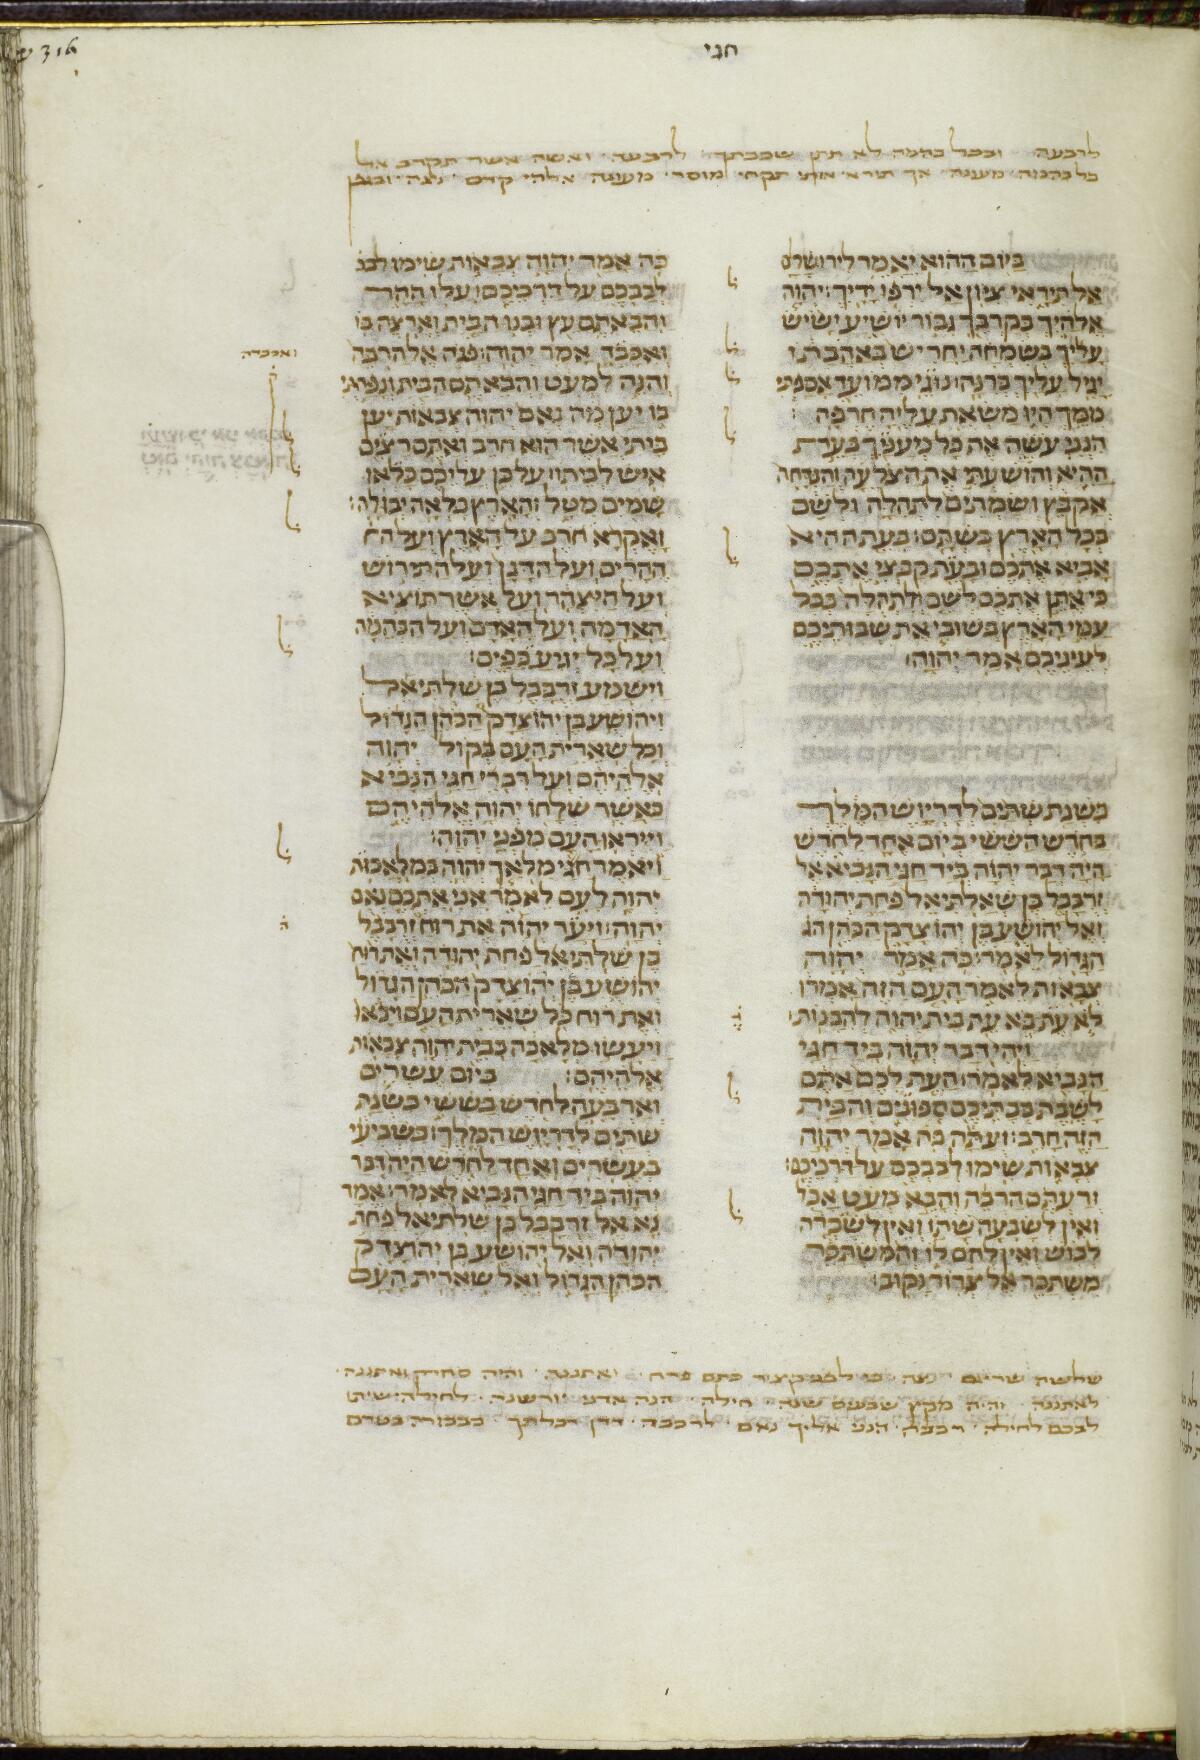 316
חגי
לרבעה ובכל בהמה לא תתן שכבתך לרבעה ואשה אשר תקרב אל
כל בהמה מענה אך תורא אותי תקחי מוסר מעונה אלהי קדם
ביום ההוא יאמר לירושלם
אל תיראי ציון אל ירפו ידיך׃ יהוה
אלהיך בקרבך גבור יושיע ישיש
עליך בשמחה יחריש באהבתו
יגיל עליך ברנה׃ נוגי ממועד אספתי
ממך היו משאת עליה חרפה׃
הנני עשה את כל מעניך בעת
ההיא והושעתי את הצלעה והנדחה
אקבץ ושמתים לתהלה ולשם
בכל הארץ בשתם׃ בעת ההיא
אביא אתכם ובעת קבצי אתכם
כי אתן אתכם לשם ולתהלה בכל
עמי הארץ בשובי את שבותיכם
לעיניכם אמר יהוה׃
בשנת שתים לדריוש המלך
בחדש הששי ביום אחד לחדש
היה דבר יהוה ביד חגי הנביא אל
זרבבל בן שאלתיאל פחת יהודה
ואל יהושע בן יהוצדק הכהן הג
הגדול לאמר׃ כה אמר יהוה
צבאות לאמר העם הזה אמרו
לא עת בא עת בית יהוה להבנות׃
ויהי דבר יהוה ביד חגי
הנביא לאמר׃ העת לכם אתם
לשבת בבתיכם ספונים והבית
הזה חרב׃ ועתה כה אמר יהוה
צבאות שימו לבבכם על דרכיכם׃
זרעתם הרבה והבא מעט אכל
ואין לשבעה שתו ואין לשכרה
לבוש ואין לחם לו והמשתכר
משתכר אל צרור נקוב׃
כה אמר יהוה צבאות שימו לבב
לבבכם על דרכיכם׃ עלו ההר
והבאתם עץ ובנו הבית וארצה בו
ואכבד אמר יהוה׃ פנה אל הרבה
והנה למעט והבאתם הבית ונפחתי
בו יען מה נאם יהוה צבאות יען
ביתי אשר הוא חרב ואתם רצים
איש לביתו׃ על כן עליכם כלאו
שמים מטל והארץ כלאה יבולה׃
ואקרא חרב על הארץ ועל הה
ההרים ועל הדגן ועל התירוש
ועל היצהר ועל אשר תוציא
האדמה ועל האדם ועל הבהמה
ועל כל יגיע כפים׃
וישמע זרבבל בן שלתיאל
ויהושע בן יהוצדק הכהן הגדול
וכל שארית העם בקול יהוה
אלהיהם ועל דברי חגי הנביא
כאשר שלחו יהוה אלהיהם
וייראו העם מפני יהוה׃
ויאמר חגי מלאך יהוה במלאכות
יהוה לעם לאמר אני אתכם נאם
יהוה׃ ויער יהוה את רוח זרבבל
בן שלתיאל פחת יהודה ואת רוח
יהושע בן יהוצדק הכהן הגדול
ואת רוח כל שארית העם ויבאו
ויעשו מלאכה בבית יהוה צבאות
אלהיהם׃ ביום עשרים
וארבעה לחדש בששי בשנת
שתים לדריוש המלך׃ בשביעי
בעשרים ואחד לחדש היה דבר
יהוה ביד חגי הנביא לאמר׃ אמר
נא אל זרבבל בן שלתיאל פחת
יהודה ואל יהושע בן יהוצדק
הכהן הגדול ואל שארית העם
ואכבדה
שלשה שריגם נצה כי לפני קציר כתם פרח ואתננה והיה סחרה ואתננה
לאתננה והיה מקץ שבעים שנה חילה הנה אדני יורשנה לחילה שיתו
לבכם לחילה רכבה הנני אליך נאם לרכבה דדן רכלתך כבכורה בטרם